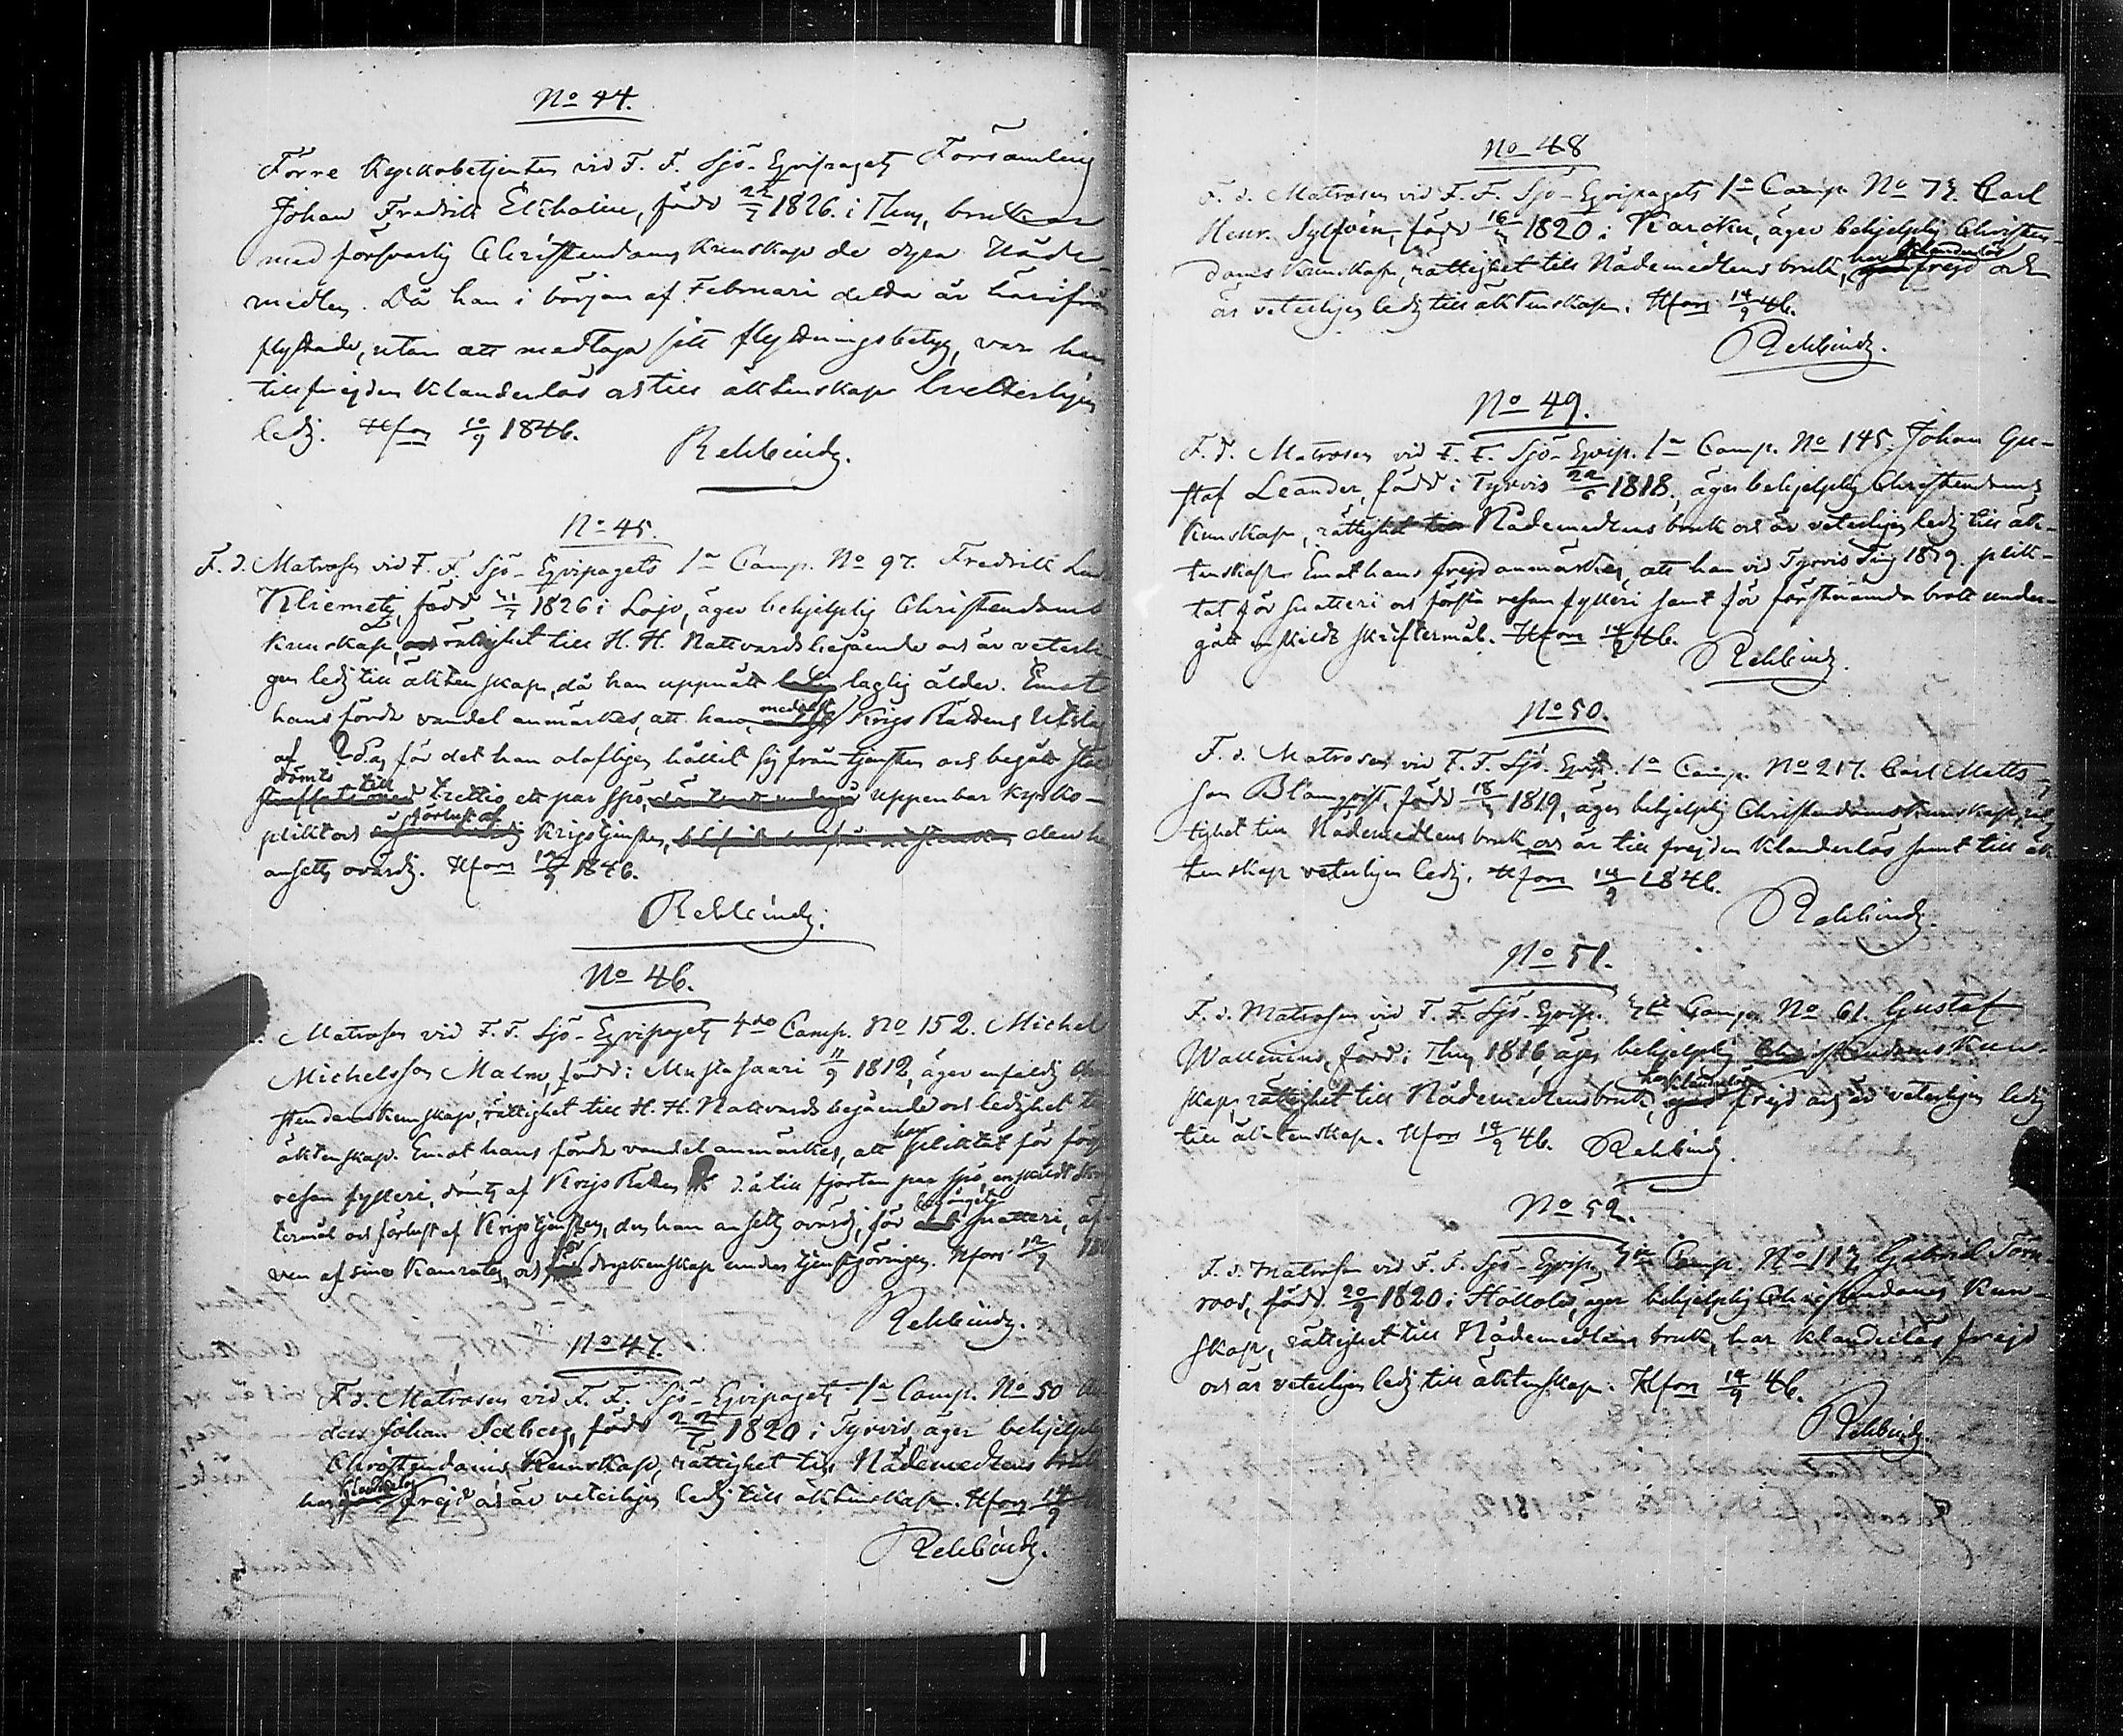 No 44.
Förre Kyrkobetjenten vid F. F. Sjö-Eqvipagets Församling
Johan Fredrik Ekholm, född 22/7 1826 i Thus, brukar
med försvarlig Christendoms kunskap de dyra Nåde-
medlen. Då han i början af Februari detta år härifrån
flyttade, utan att medtaga sitt flyttningsbetyg, var han
till frejden klanderlös och till äktenskap hvetterligen
ledig. Hfors 10/9 1846.
Rehbinder.
No 45.
F. d. Matrosen vid F. F. Sjö-Eqvipagets 1a Comp. No 97. Fredrik
Kliemetz, född 1826 i Lojo, äger behjelplig Christendoms
kunskap, och rättighet till H. H. Nattvards begående och är veterli-
gen ledig till äktenskap, då han uppnått laglig ålder. Emot
hans förda vandel anmärkes, att han, medelst Krigs Rättens Utslag
af d. a. för det han olofligen hållit sig från tjensten och begått
dömts till trettio ett par spö, uppenbar kyrko-
plikt och förlust af Krigstjensten, den han
ansetts ovärdig. Hfors 12/9 1846.
Rehbinder.
No 46.
Matrosen vid F. F. Sjö-Eqvipagets 4de Comp. No 152. Michel
Michelsson Malm, född i Mustasaari 11/9 1812, äger enfaldig Chri-
stendomskunskap, rättighet till H. H. Nattvards begående och ledighet till
äktenskap. Emot hans förda vandel anmärkes, att han pliktat för första
resan fylleri, dömts af Krigs Rätten d. å. till fjorton par spö, enskildt skrif-
termål och förlust af Krigstjensten, den han ansetts ovärdig, för begånget snatteri, äf-
ven af sine Kamrater, och för dryckenskap under tjenstgöringen. Hfors 12/9 184
Rehbinder.
No 47.
F. d. Matrosen vid F. F. Sjö-Eqvipagets 1a Comp. No 50
der Johan Sexberg, född 22/6 1820 i Tyrvis, äger behjelplig
Christendoms Kunskap, rättighet till Nådemedlens bruk
har klanderlös frejd och är veterligen ledig till äktenskap. Hfors 14/9
Rehbinder.
No 48
F. d. Matrosen vid F. F. Sjö-Eqvipagets 1a Comp. No 73. Carl
Henr. Sylfvén, född 16 1820 i Karcku, äger behjelplig Christen-
doms kunskap, rättighet till Nådemedlens bruk, har klanderlös frejd och
är veterligen ledig till äktenskap. Hfors 14/9 46.
Rehbinder.
No 49.
F. d. Matrosen vid F. F. Sjö-Eqvip. 1a Comp. No 145. Johan Gu-
staf Leander, född i Tyrvis 22/6 1818, äger behjelplig Christendoms
kunskap, rättighet till Nådemedlens bruk och är veterligen ledig till äk-
tenskap. Emot hans frejd anmärkes, att han vid Tyrvis Ting 1839. plik-
tat för snatteri och första resan fylleri samt för förstnämnda brott under-
gått enskildt skriftermål. Hfors 14/9 46.
Rehbinder.
No 50.
F. d. Matrosen vid F. F. Sjö-Eqvip. 1a Comp. No 217. Carl Matts-
son Blomqvist, född 18 1819, äger behjelplig Christendomskunskap, rät-
tighet till Nådemedlens bruk och är till frejden klanderlös samt till äk-
tenskap veterligen ledig. Hfors 14/9 1846.
Rehbinder.
No 51.
F. d. Matrosen vid F. F. Sjö-Eqvip. Comp. No 61. Gustaf
Wallenius, född i Thus 1816, äger behjelplig Christendoms Kun-
skap, rättighet till Nådemedlens bruk, har klanderlös frejd och är veterligen ledig
till äktenskap. Hfors 14/9 46. Rehbinder.
No 52.
F. d. Matrosen vid F. F. Sjö-Eqvip. Comp. No 113 Gabriel Törn-
roos, född 20/9 1820 i Hollola, äger behjelplig Christendoms Kun-
skap, rättighet till Nådemedlens bruk, har klanderlös frejd
och är veterligen ledig till äktenskap. Hfors 14/9 46.
Rehbinder.